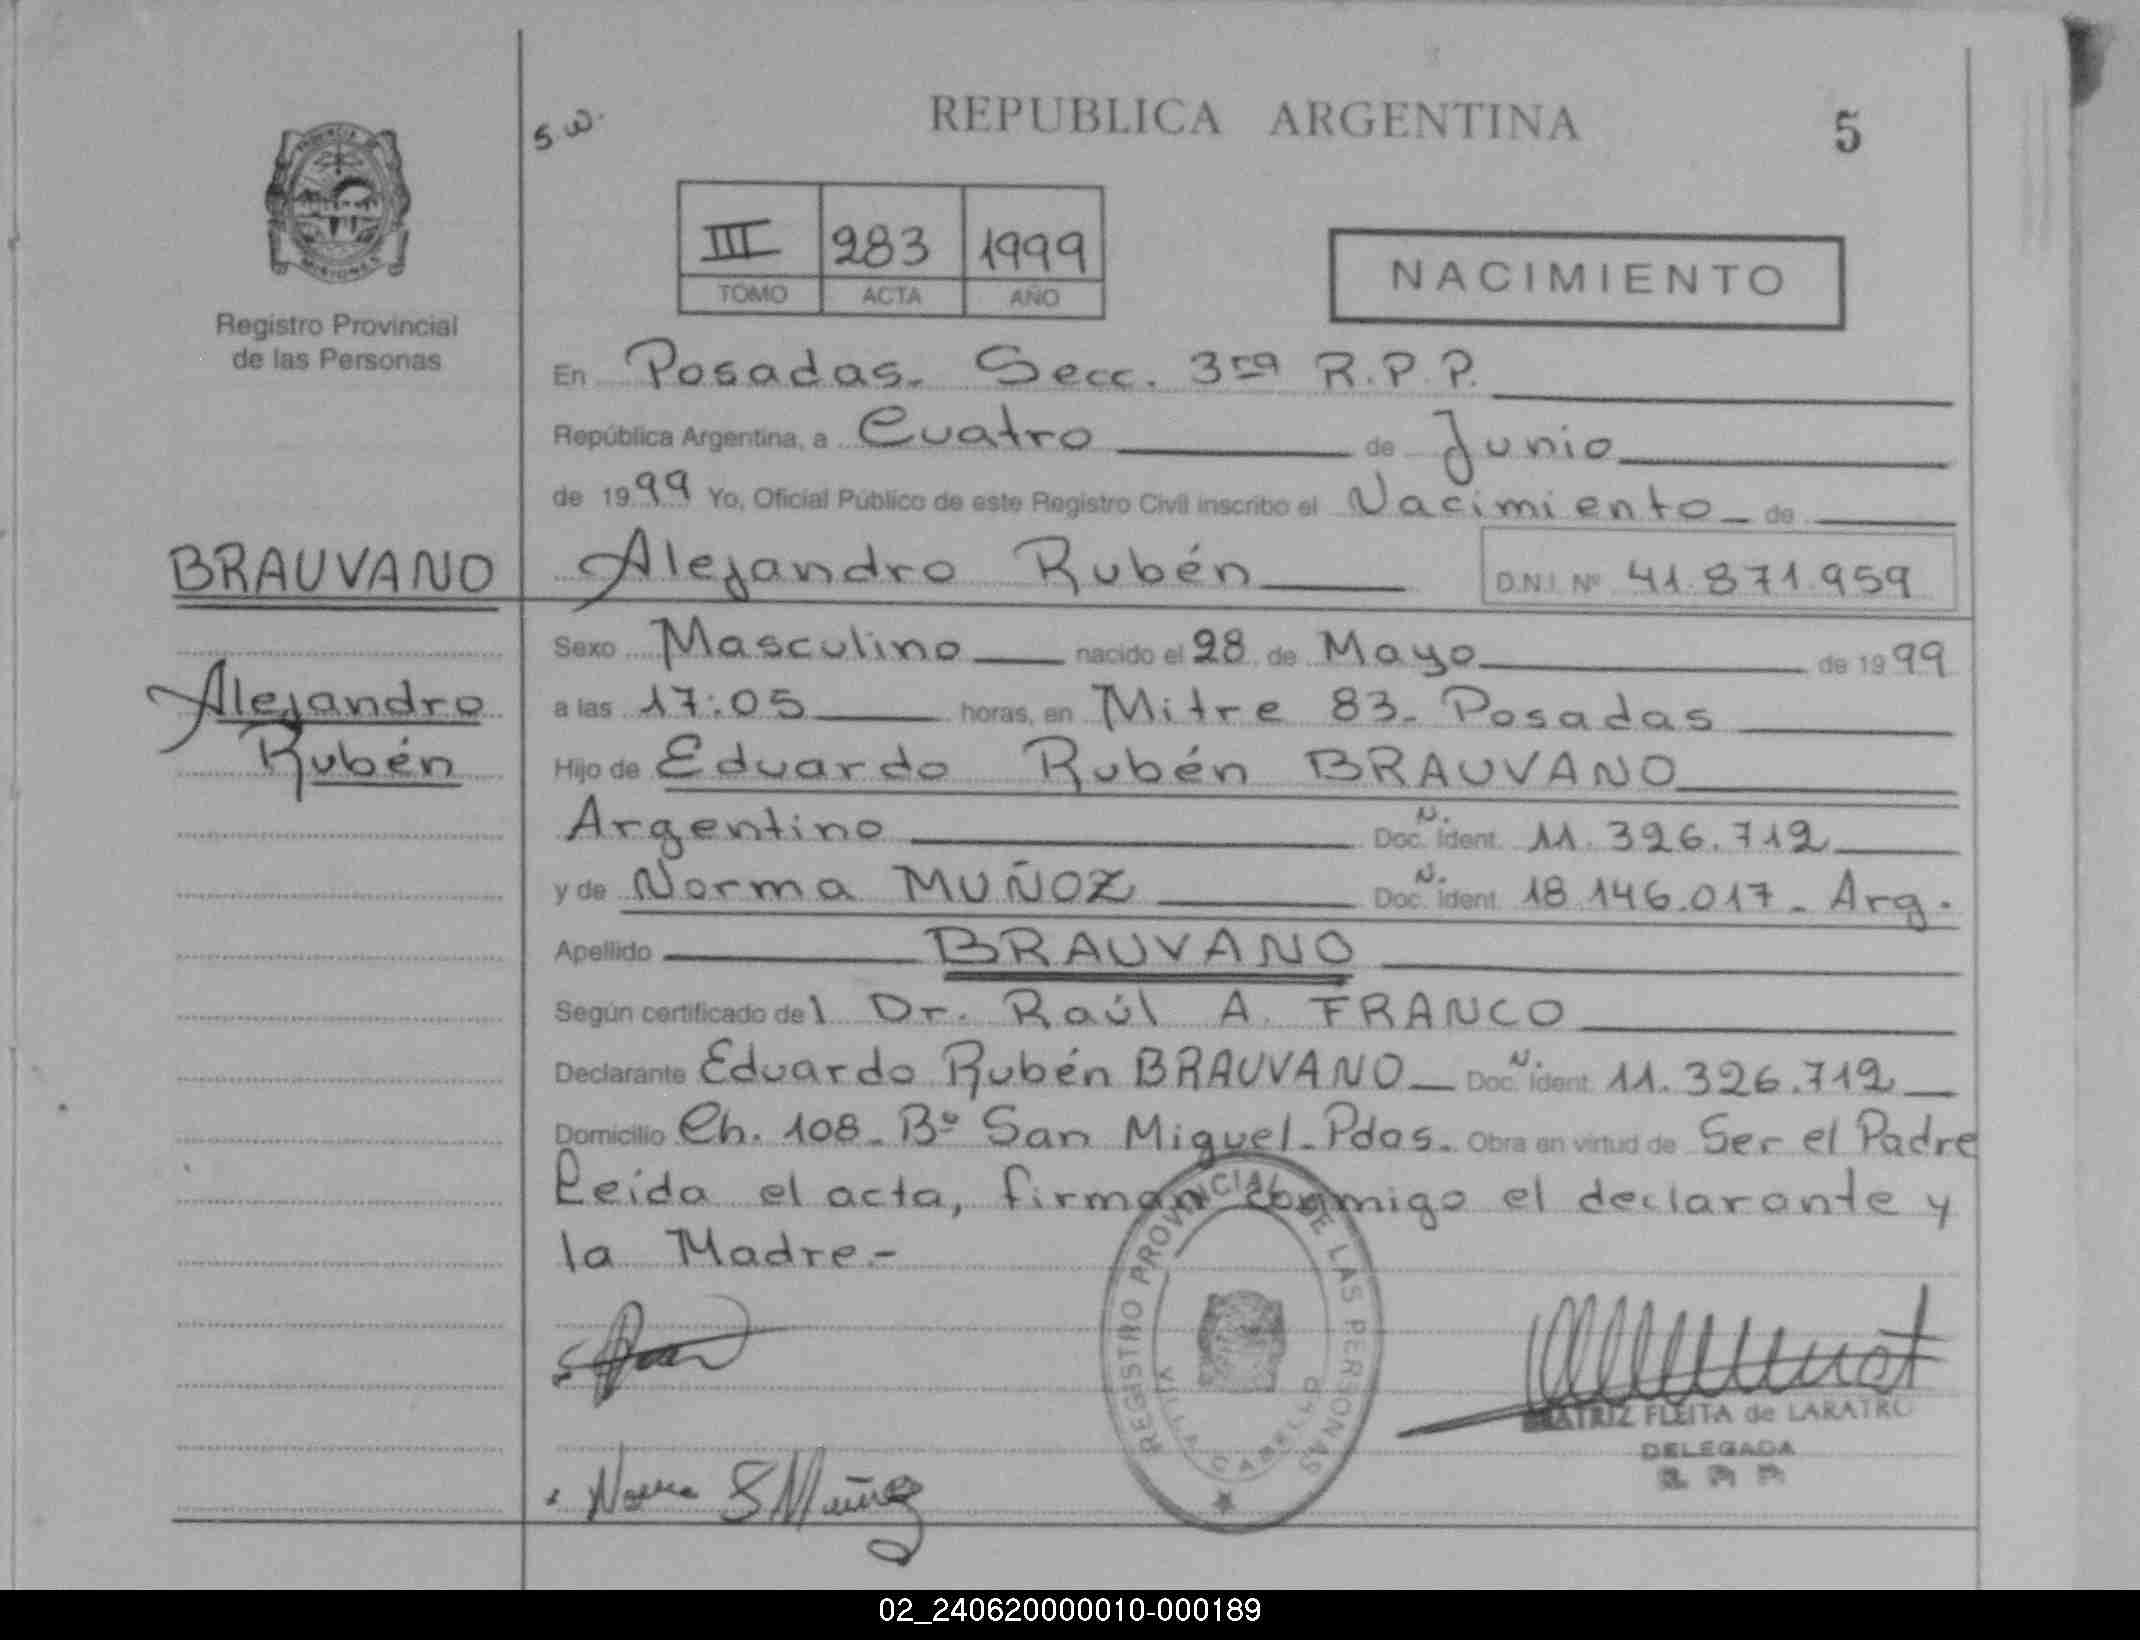 REPUBLICA ARGENTINA
5
s.w.
III 283 1999
TOMO ACTA AÑO
NACIMIENTO
Registro Provincial
de las Personas
En Posadas. Secc. 3ra R.P.P.
República Argentina, a Cuatro de Junio
de 1999 Yo, Oficial Público de este Registro Civil inscribo el Nacimiento de
BRAUVANO
Alejandro Rubén
D.N.I. Nº 41.871.959
Sexo Masculino nacido el 28 de Mayo de 1999
Alejandro
Rubén
a las 17:05 horas, en Mitre 83. Posadas
Hijo de Eduardo Rubén BRAUVANO
Argentino Doc. N. Ident. 11.326.712
y de Norma MUÑOZ Doc. N. Ident. 18.146.017 - Arg.
Apellido BRAUVANO
Según certificado del Dr. Raúl A. FRANCO
Declarante Eduardo Rubén BRAUVANO Doc. N. Ident. 11.326.712
Domicilio Ch. 108. Bº San Miguel - Pdas. Obra en virtud de Ser el Padre
Leída el acta, firman conmigo el declarante y
la Madre.-
REGISTRO PROVINCIAL DE LAS PERSONAS
VILLA CABELLO
FLEITA de LARATRO
DELEGADA
Norma S Muñoz
02_240620000010-000189